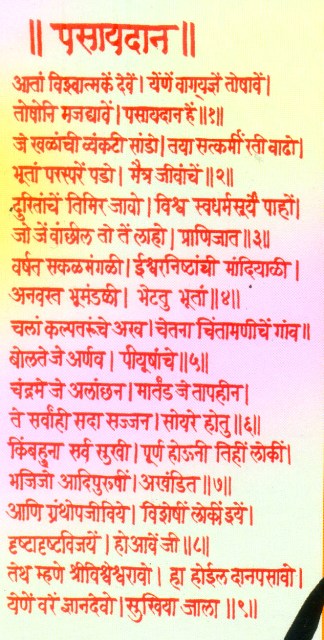 ॥ पसायदान ॥
आतां विश्वात्मकें देवें। येणें वाग्यज्ञें तोषावें।
तोषोनि मजद्यावें। पसायदान हें॥१॥
जे खळांची व्यंकटी सांडो। तया सत्कर्मी रती वाढो।
भूतां परस्परें पडो। मैत्र जीवांचें॥२॥
दुरितांचें तिमिर जावो। विश्व स्वधर्मसूर्यें पाहों।
जो जें वांछील तो तें लाहो। प्राणिजात॥३॥
वर्षत सकळमंगळी। ईश्वरनिष्ठांची मांदियाळी।
अनवरत भूमंडळी। भेटतु भूतां॥४॥
चलां कल्पतरूंचे अरव। चेतना चिंतामणीचें गांव॥
बोलते जे अर्णव। पीयूषांचे॥५॥
चंद्रमे जे अलांछन। मार्तंड जे तापहीन।
ते सर्वांही सदा सज्जन। सोयरे होतु॥६॥
किंबहुना सर्व सुखी। पूर्ण होऊनी तिहीं लोकीं।
भजिजो आदिपुरुषीं। अखंडित॥७॥
आणि ग्रंथोपजीविये। विशेषीं लोकीं इयें।
दृष्टादृष्टविजयें। होआवें जी॥८॥
तेथ म्हणे श्रीविश्वेश्वरावो। हा होईल दानपसावो।
येणें वरें ज्ञानदेवो। सुखिया जाला॥९॥